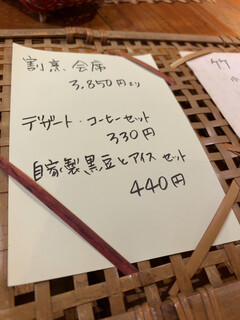 割烹 会席
3,850円より
デザート・コーヒーセット
330円
自家製黒豆とアイス セット
440円
竹